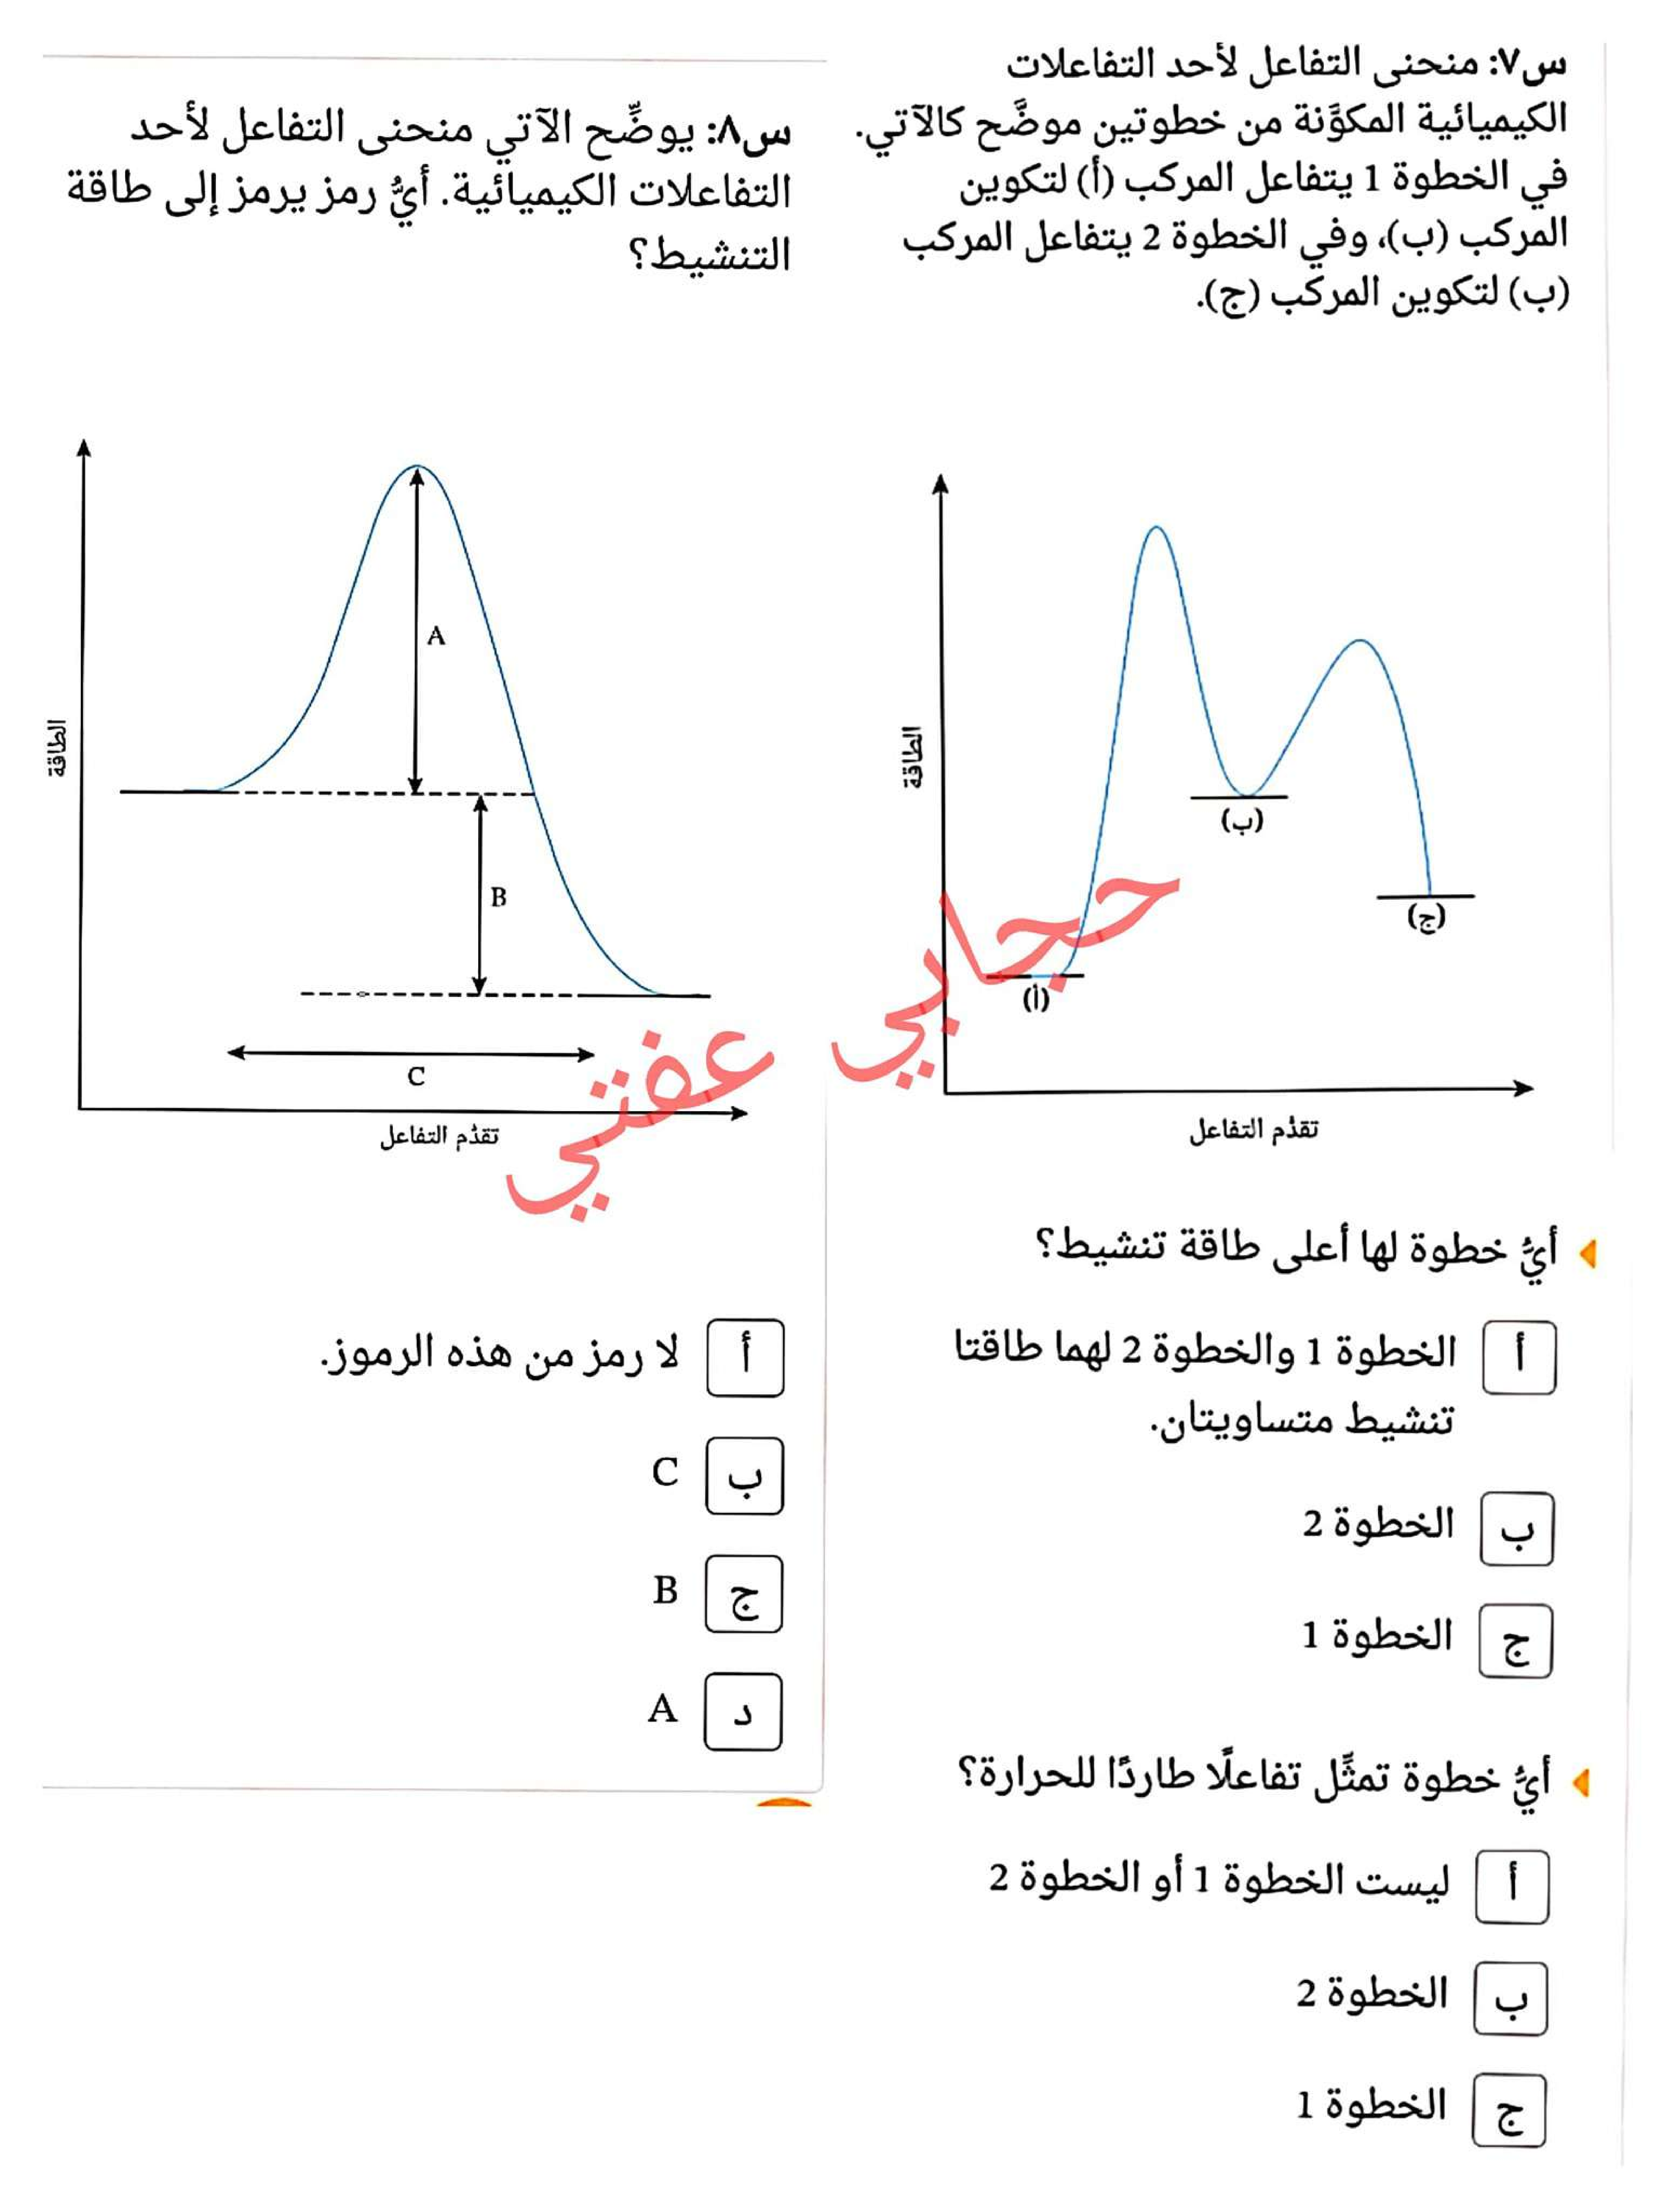 س٧: منحنى التفاعل لأحد التفاعلات
الكيميائية المكوَّنة من خطوتين موضَّح كالآتي.
في الخطوة 1 يتفاعل المركب (أ) لتكوين
المركب (ب)، وفي الخطوة 2 يتفاعل المركب
(ب) لتكوين المركب (ج).
الطاقة
(ب)
(ج)
(أ)
تقدُّم التفاعل
أيُّ خطوة لها أعلى طاقة تنشيط؟
أ الخطوة 1 والخطوة 2 لهما طاقتا
تنشيط متساويتان.
ب الخطوة 2
ج الخطوة 1
أيُّ خطوة تمثِّل تفاعلًا طاردًا للحرارة؟
أ ليست الخطوة 1 أو الخطوة 2
ب الخطوة 2
ج الخطوة 1
س٨: يوضِّح الآتي منحنى التفاعل لأحد
التفاعلات الكيميائية. أيُّ رمز يرمز إلى طاقة
التنشيط؟
الطاقة
A
B
C
تقدُّم التفاعل
أ لا رمز من هذه الرموز.
ب C
ج B
د A
حجابي عفتي